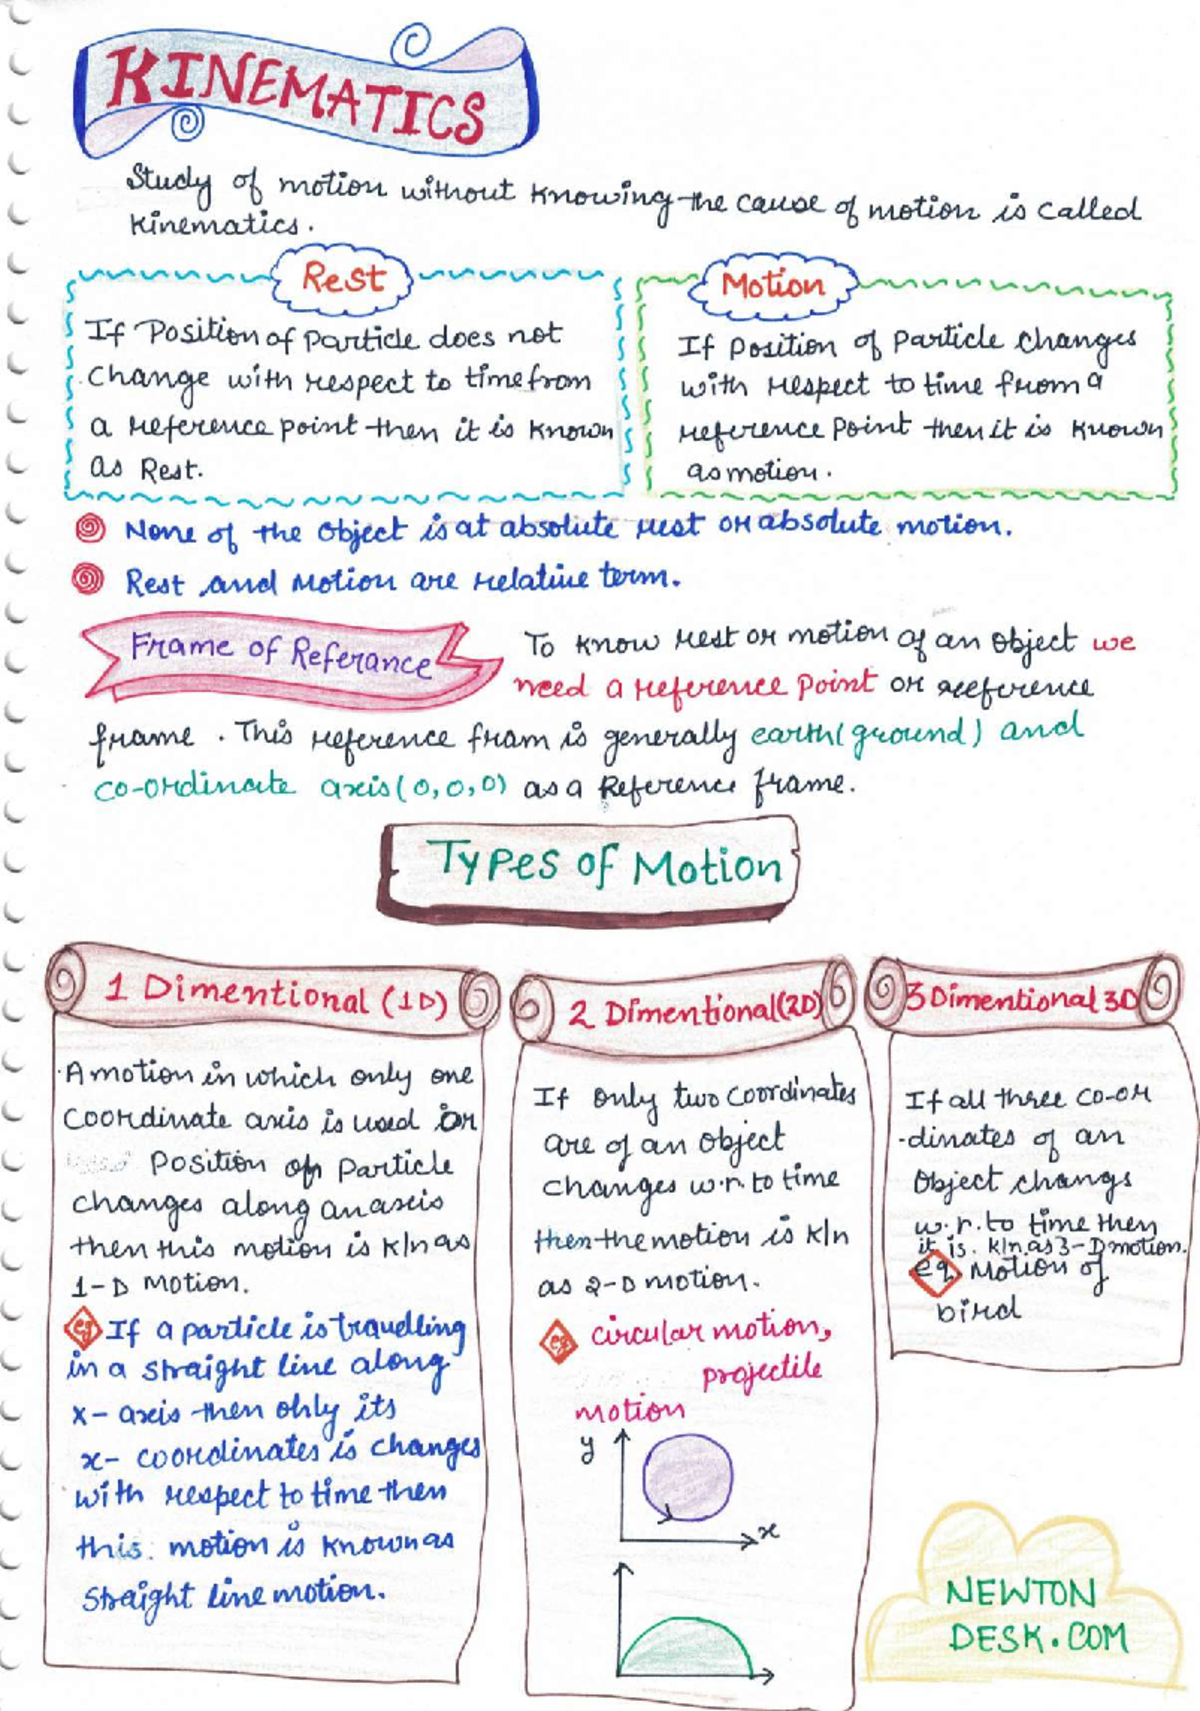 KINEMATICS
Study of motion without knowing the cause of motion is called
kinematics.
Rest
If Position of particle does not
change with respect to time from
a reference point then it is known
as Rest.
Motion
If position of particle changes
with respect to time from a
reference point then it is known
as motion.
None of the object is at absolute rest or absolute motion.
Rest and Motion are relative term.
Frame of Referance
To know rest or motion of an object we
need a reference point or reeference
frame. This reference fram is generally earth(ground) and
co-ordinate axis(0,0,0) as a Reference frame.
Types of Motion
1 Dimentional (1D)
A motion in which only one
coordinate axis is used or
position of particle
changes along an axis
then this motion is k/n as
1-D Motion.
eg If a particle is travelling
in a straight line along
x-axis then only its
x- coordinates is changes
with respect to time then
this motion is known as
straight line motion.
2 Dimentional(2D)
If only two coordinates
are of an object
changes w.r. to time
then the motion is k/n
as 2-D motion.
eg circular motion,
projectile
motion
y
x
3 Dimentional 3D
If all three co-or
-dinates of an
object changs
w.r. to time then
it is k/n as 3-D motion.
eg Motion of
bird
NEWTON
DESK.COM